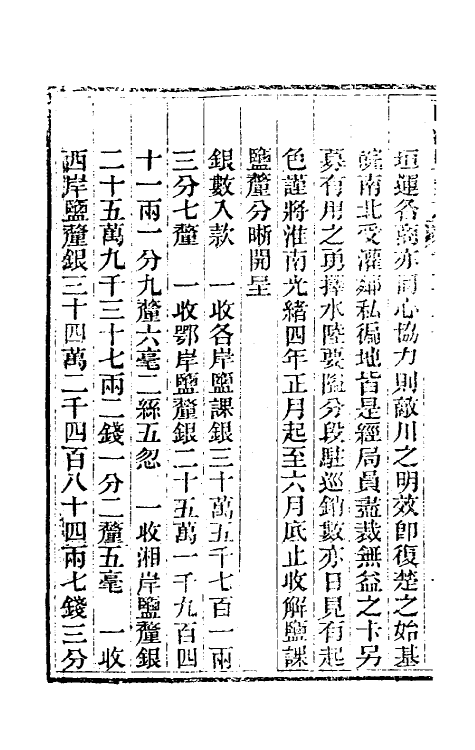 垣運各商亦同心協力則敵川之明效即復楚之始基
皖南北受灌鄰私徧地皆是經局員盡裁無益之卡另
募有用之勇擇水陸要隘分段駐巡銷數亦日見有起
色謹將淮南光緒四年正月起至六月底止收解鹽課
鹽釐分晰開呈
銀數入款　一收各岸鹽課銀三十萬五千七百一兩
三分七釐　一收鄂岸鹽釐銀二十五萬一千九百四
十一兩一分九釐六毫二絲五忽　一收湘岸鹽釐銀
二十五萬九千三十七兩二錢一分二釐五毫　一收
西岸鹽釐銀三十四萬二千四百八十四兩七錢三分